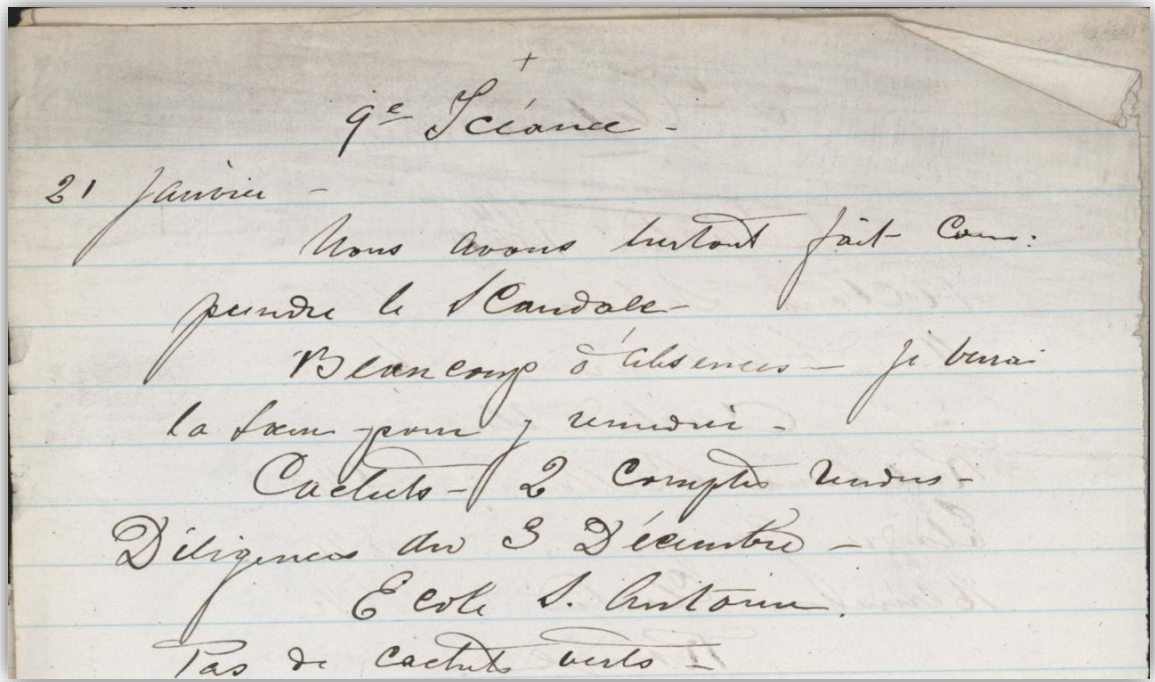 +
9e Séance -
21 Janvier -
Nous avons surtout fait com:
prendre le Scandale -
Beaucoup d'absences - je verrai
la Sœur pour y remédier -
Cachets - 2 Comptes rendus -
Diligences du 3 Décembre -
Ecole S. Antoine.
Pas de cachets verts -